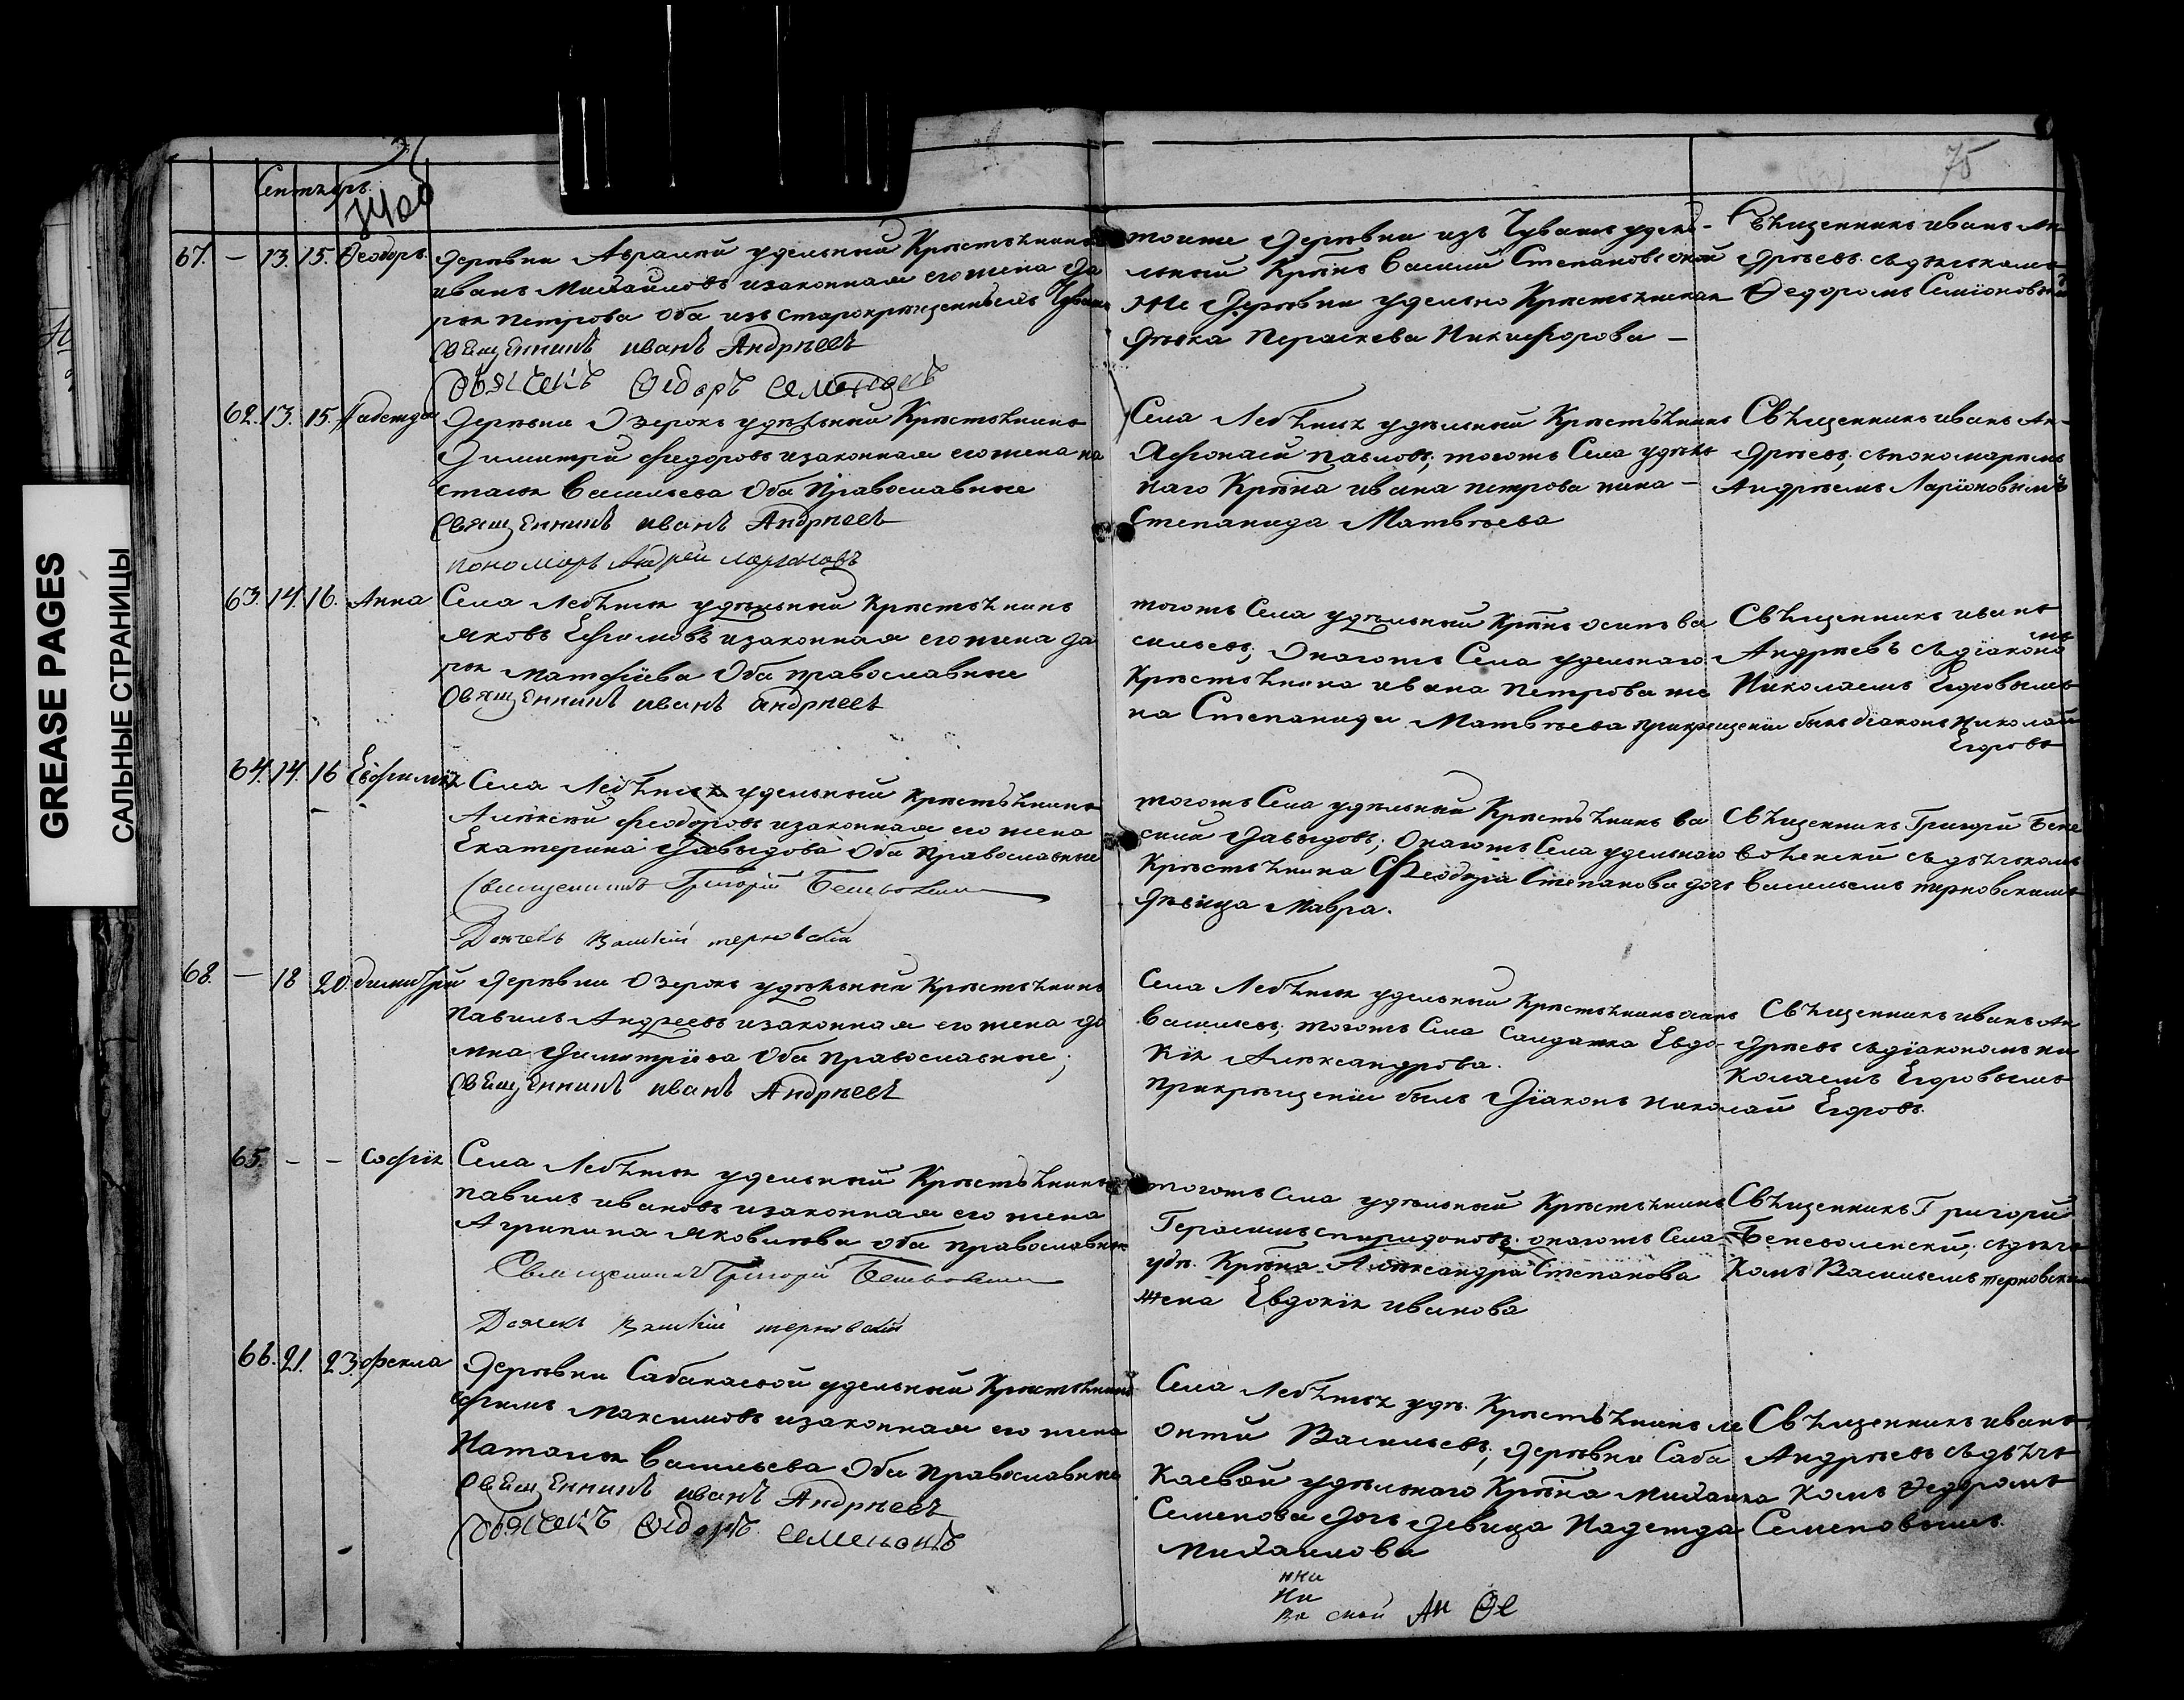 GREASE PAGES
САЛЬНЫЕ СТРАНИЦЫ
75
Сентябрь
67. — 13. 15. Ѳеодоръ
деревни Авралей удельный Крестьянинъ
иванъ Михайловъ изаконная его жена Да
рья Петрова оба изъ старокрещенныхъ Чуваш
священникъ иванъ Андреевъ
дьячекъ Федоръ Семеновъ
тоиже деревни изъ Чувашъ удѣ-
льный Крѣнъ Василий Степановъ оной
же деревни удельно Крестьянская
дѣвка Параскева Никифорова —
Священникъ иванъ Ан
дреевъ съ дьячкомъ
Ѳедоромъ Семіоновымъ
62. 13. 15. Надежда
деревни Озерокъ удѣльный Крестьянинъ
Димитрий федоровъ изаконная его жена на
сталья Васильева Оба Православные
священникъ иванъ Андреевъ
пономарь Андрей Ларионовъ
Села Лебяжья удѣльный Крестьянинъ
Афонасий Павловъ, тогожъ Села удѣль
наго Крѣна ивана петрова жина —
Степанида Матвѣева
Священникъ иванъ Ан-
дреевъ, съ пономаремъ
Андреемъ Ларіоновымъ
63. 14. 16. Анна
Села Лебяжья удѣльный крестьянинъ
яковъ Ефимовъ изаконная его жена Да
рья матфіева Оба православные
священникъ иванъ андреевъ
тогожъ Села удѣльный Крѣнъ осипъ Ва
сильевъ, Оногожъ Села удельнаго
Крестьянина ивана петрова же
на Степанида Матвѣева прикрещении былъ діаконъ Николай
Егоровъ
Священникъ иванъ
Андреевъ съ діакономъ
Николаемъ Егоровымъ
64. 14. 16 Евфимія
Села Лебяжья удельный крестьянинъ
Алексей феодоровъ изаконная его жена
Екатерина Давыдова Оба Православные
Священникъ Григорій Беневоленский
Дьячекъ Василий терновский
тогожъ Села удѣльный Крестьянинъ Ва
силий Давыдовъ, Оногожъ Села удельнаго
Крестьянина Феодора Степанова дочь
дѣвица Мавра.
Священникъ Григорій Бене
воленский съ дьячкомъ
Васильемъ терновскимъ
68. — 18 20. димитрий
деревни Озерокъ удѣльный Крестьянинъ
Павилъ Андреевъ изаконная его жена До
мна Димитріева Оба Православные;
священникъ иванъ Андреевъ
Села Лебяжья удельный Крестьянинъ осипъ
Васильевъ, тогожъ Села Салдатка Евдо-
кія Александрова.
прикрещении былъ Діаконъ николай Егоровъ
Священникъ иванъ Ан
дреевъ съ діакономъ ни
колаемъ Егоровымъ
65. — — Софія
Села Лебяжья удельный Крестьянинъ
павилъ ивановъ изаконная его жена
Агрипина яковлева оба православные
Священникъ Григорій Беневоленский
Дьячекъ Василий терновский
тогожъ Села удѣльный Крестьянинъ
Герасимъ спиридоновъ; оногожъ Села
удѣ. Крѣна Александра Степанова
жена Евдокія иванова
Священникъ Григорий
Беневоленский, съ дьяч
комъ Васильемъ терновским
66. 21. 23. фекла
Деревни Сабакаевой удельный Крестьянинъ
ефимъ Максимовъ изаконная его жена
Наталья Васильева Оба Православные
священникъ иванъ Андреевъ
дьячекъ Федоръ Семеновъ
Села Лебяжья удѣ. Крестьянинъ ле
онтий Васильевъ, деревни Саба
каевой удѣльнаго Крѣна михаила
Семенова дочь девица Надежда
Михаилова
Священникъ иванъ
Андреевъ съ дьяч
комъ Ѳедоромъ
Семеновымъ
жни
Ни
Ва силй Ан Ѳе